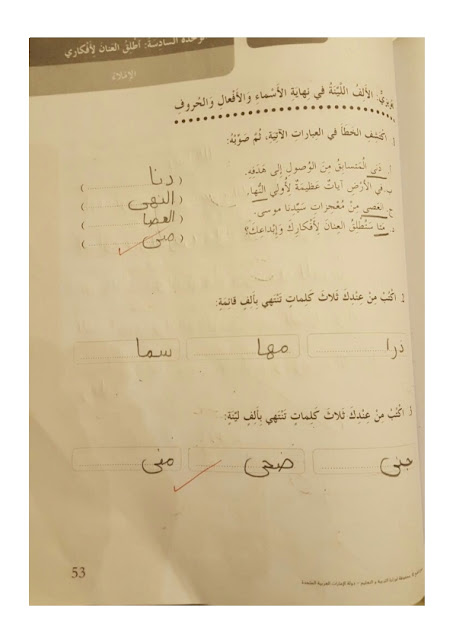 الوحدة السادسة: أطلق العنان لأفكاري
الإملاء
الأَلِفُ اللَّيِّنَةُ في نِهايَةِ الأَسْماءِ وَالأَفْعالِ وَالحُروفِ
اكْتَشِفِ الخَطَأَ في العِباراتِ الآتِيَةِ، ثُمَّ صَوِّبْهُ:
أ. دَنى المُتَسابِقُ مِنَ الوُصولِ إِلى هَدَفِهِ. (دنا)
ب. في الأَرْضِ آياتٌ عَظيمَةٌ لِأُولي النُّها. (النهى)
ج. العَصى مِنْ مُعْجِزاتِ سَيِّدِنا موسى. (العصا)
د. مَتا سَتُطْلِقُ العِنانَ لِأَفْكارِكَ وَإِبْداعِكَ؟ (متى)
اكْتُبْ مِنْ عِنْدِكَ ثَلاثَ كَلِماتٍ تَنْتَهي بِأَلِفٍ قائِمَةٍ:
ذرا مها سما
اكْتُبْ مِنْ عِنْدِكَ ثَلاثَ كَلِماتٍ تَنْتَهي بِأَلِفٍ لَيِّنَةٍ:
جنى ضحى منى
53
محفوظة لوزارة التربية و التعليم - دولة الإمارات العربية المتحدة